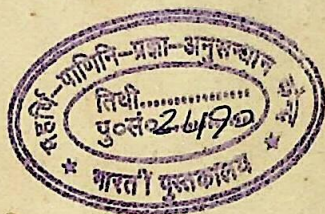 महर्षि-पाणिनि-प्रज्ञा-अनुसन्धान
तिथी................
पु०सं०
★ भारती पुस्तकालय ★